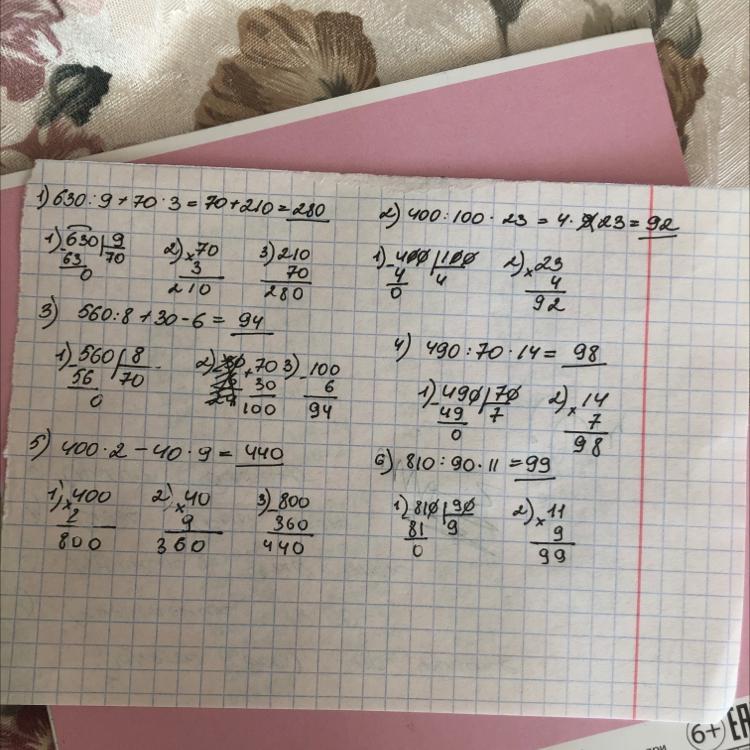 1) 630 : 9 + 70 · 3 = 70 + 210 = 280
1) 630 | 9
- 63 | 70
0
2) × 70
3
210
3) 210
70
280
2) 400 : 100 · 23 = 4 · 23 = 92
1) - 400 | 100
4 | 4
0
2) × 23
4
92
3) 560 : 8 + 30 - 6 = 94
1) - 560 | 8
56 | 70
0
2) + 70
30
100
3) - 100
6
94
4) 490 : 70 · 14 = 98
1) - 490 | 70
49 | 7
0
2) × 14
7
98
5) 400 · 2 - 40 · 9 = 440
1) × 400
2
800
2) × 40
9
360
3) - 800
360
440
6) 810 : 90 · 11 = 99
1) - 810 | 90
81 | 9
0
2) × 11
9
99
6+